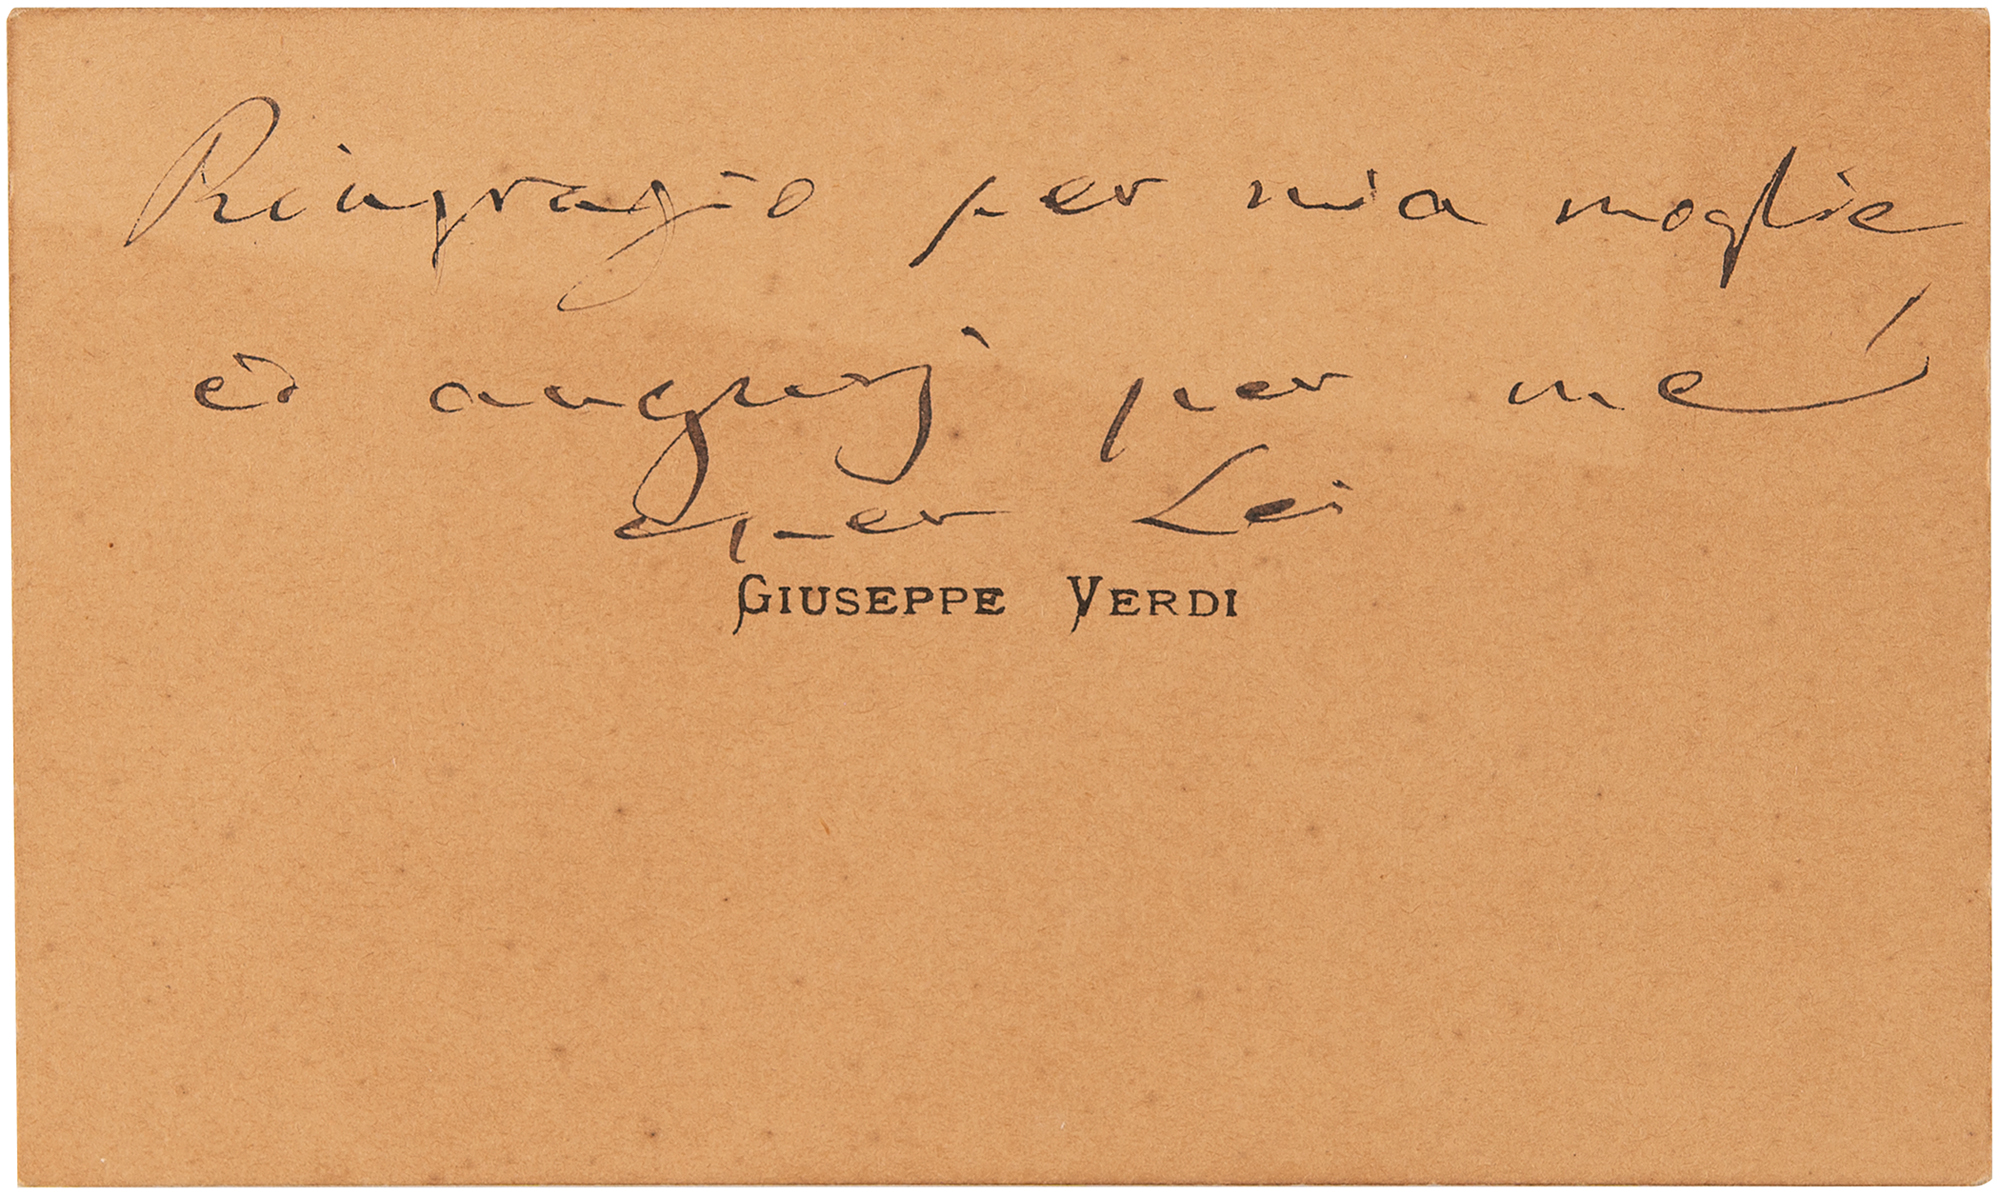 Ringrazio per mia moglie
ed augurj per me
e per Lei
GIUSEPPE VERDI